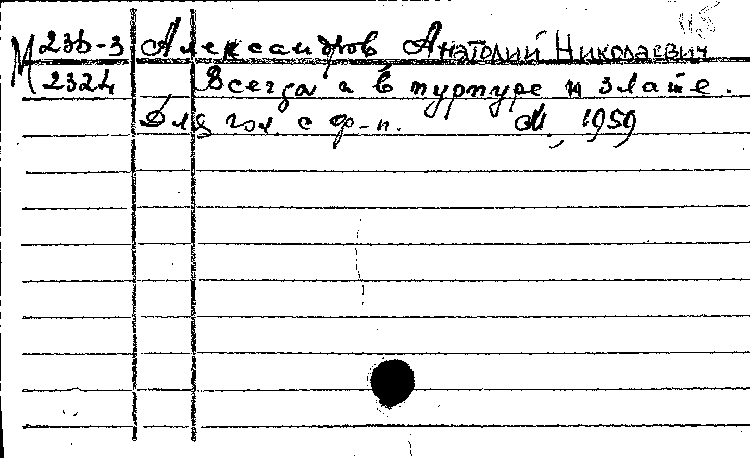 М 23б-3 Александров Анатолий Николаевич
2324 Всегда в пурпуре и злате.
Для гол. с ф-п. М., 1959